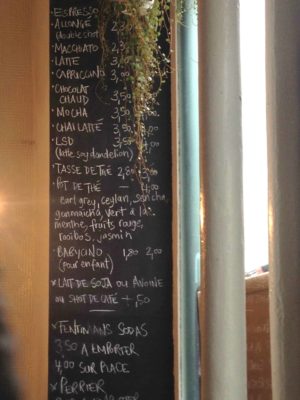 • ESPRESSO
• ALLONGÉ 2,30
(double shot
• MACCHIATO 2,
• LATTE 3,
• CAPPUCCINO 3,
• CHOCOLAT
CHAUD 3,50
• MOCHA 3,50 4,00
• CHAI LATTÉ 3,50 4,00
• LSD 3,50
(latte soy dandelion)
• TASSE DE THÉ 2,80
• POT DE THÉ — 4,00
earl grey, ceylan, sencha,
genmaicha, vert à la
menthe, fruits rouge,
rooibos, jasmin
BABYCINO 1,80 2,00
(pour enfant)
* LAIT DE SOJA OU AVOINE
OU SHOT DE CAFÉ + ,50
* FENTIMANS SODAS
3,50 A EMPORTER
4,00 SUR PLACE
* PERRIER